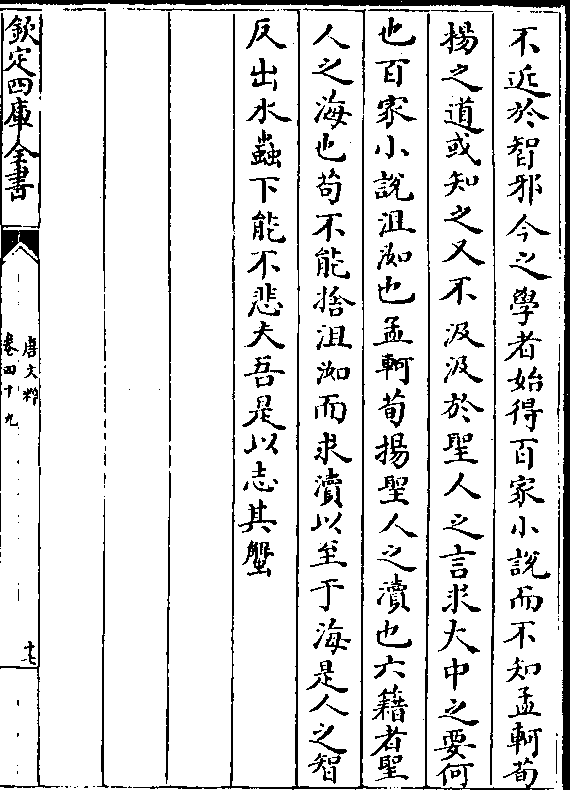 不近於智邪今之學者始得百家小說而不知孟軻荀
揚之道或知之又不汲汲於聖人之言求大中之要何
也百家小說沮洳也孟軻荀揚聖人之瀆也六籍者聖
人之海也苟不能捨沮洳而求瀆以至于海是人之智
反出水蟲下能不悲夫吾是以志其蟹
欽定四庫全書
唐文粹
卷四十九
十七